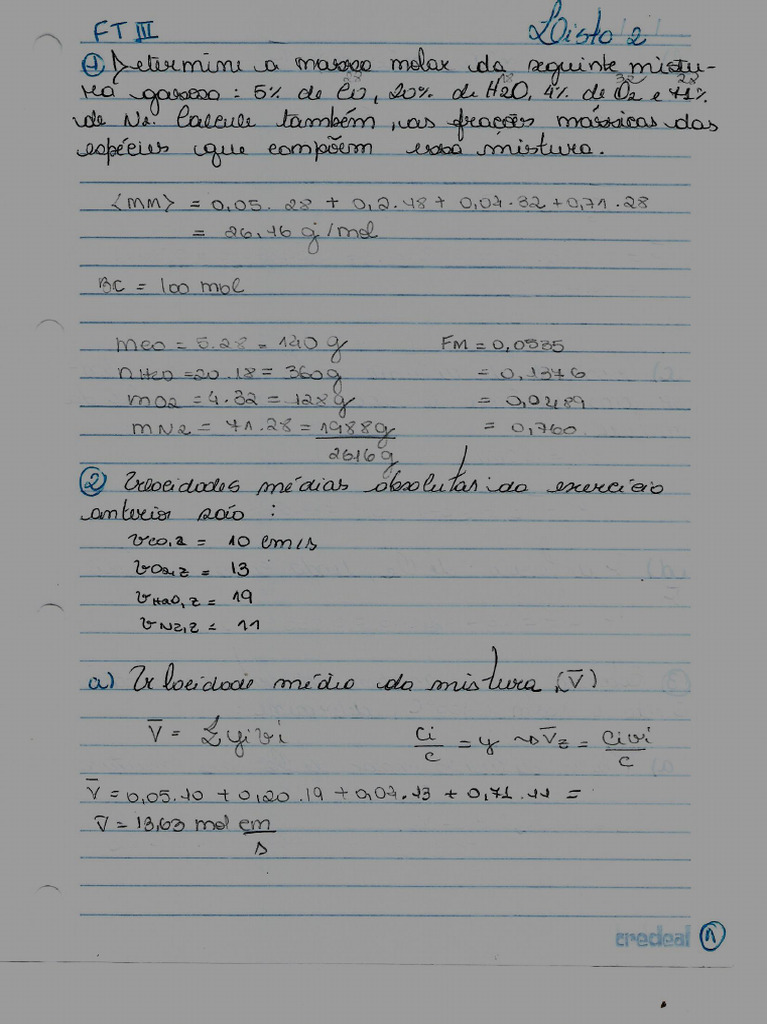 FT III Lista 2
① Determine a massa molar da seguinte mistu-
ra gasosa: 5% de CO, 20% de H2O, 4% de O2 e 71%
de N2. Calcule também, as frações mássicas das
espécies que compõem essa mistura.
28 18 32 28
⟨MM⟩ = 0,05. 28 + 0,2.18 + 0,04.32 + 0,71.28
= 26,16 g/mol
BC = 100 mol
mCO = 5.28 = 140 g FM = 0,0535
mH2O = 20.18 = 360g = 0,1376
mO2 = 4.32 = 128g = 0,0489
mN2 = 71.28 = 1988g = 0,760
2616g
② Velocidades médias absolutas do exercício
anterior são:
vCO,z = 10 cm/s
vO2,z = 13
vH2O,z = 19
vN2,z = 11
a) Velocidade média da mistura (V̄)
V̄ = Σyivi ci/c = y ⇝ V̄z = civi/c
V̄ = 0,05.10 + 0,20.19 + 0,04.13 + 0,71.11 =
V̄ = 13,63 mol cm/s
credeal ①